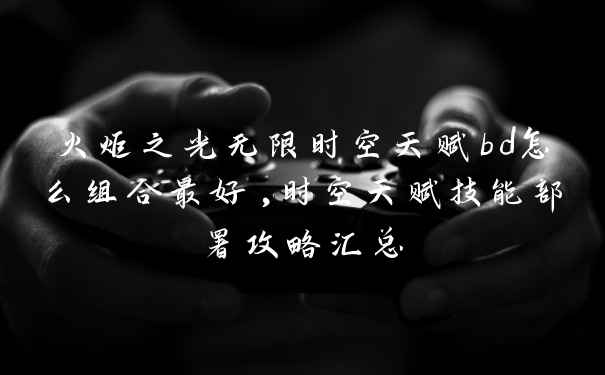 火炬之光无限时空天赋bd怎
么组合最好,时空天赋技能部
署攻略汇总